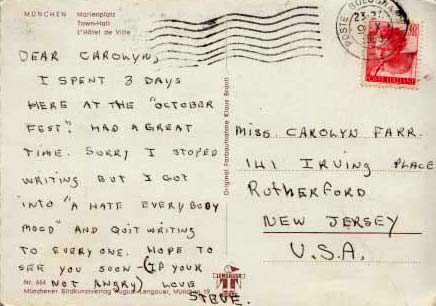 MÜNCHEN Marienplatz
Town-Hall
L'Hôtel de Ville
DEAR CAROLYN,
I SPENT 3 DAYS
HERE AT THE "OCTOBER
FEST". HAD A GREAT
TIME. SORRY I STOPED
WRITING BUT I GOT
INTO "A HATE EVERYBODY
MOOD" AND QUIT WRITING
TO EVERYONE. HOPE TO
SEE YOU SOON (IF YOUR
NOT ANGRY) LOVE
STEVE.
Nr. 664
Münchener Bildkunstverlag August Lengauer, München 19
Original Farbaufnahme Klaus Brantl
LENGAUER
POSTE BOLOGNA
23
POSTE ITALIANE
MISS. CAROLYN FARR.
141 IRVING PLACE
RUTHERFORD
NEW JERSEY
U.S.A.